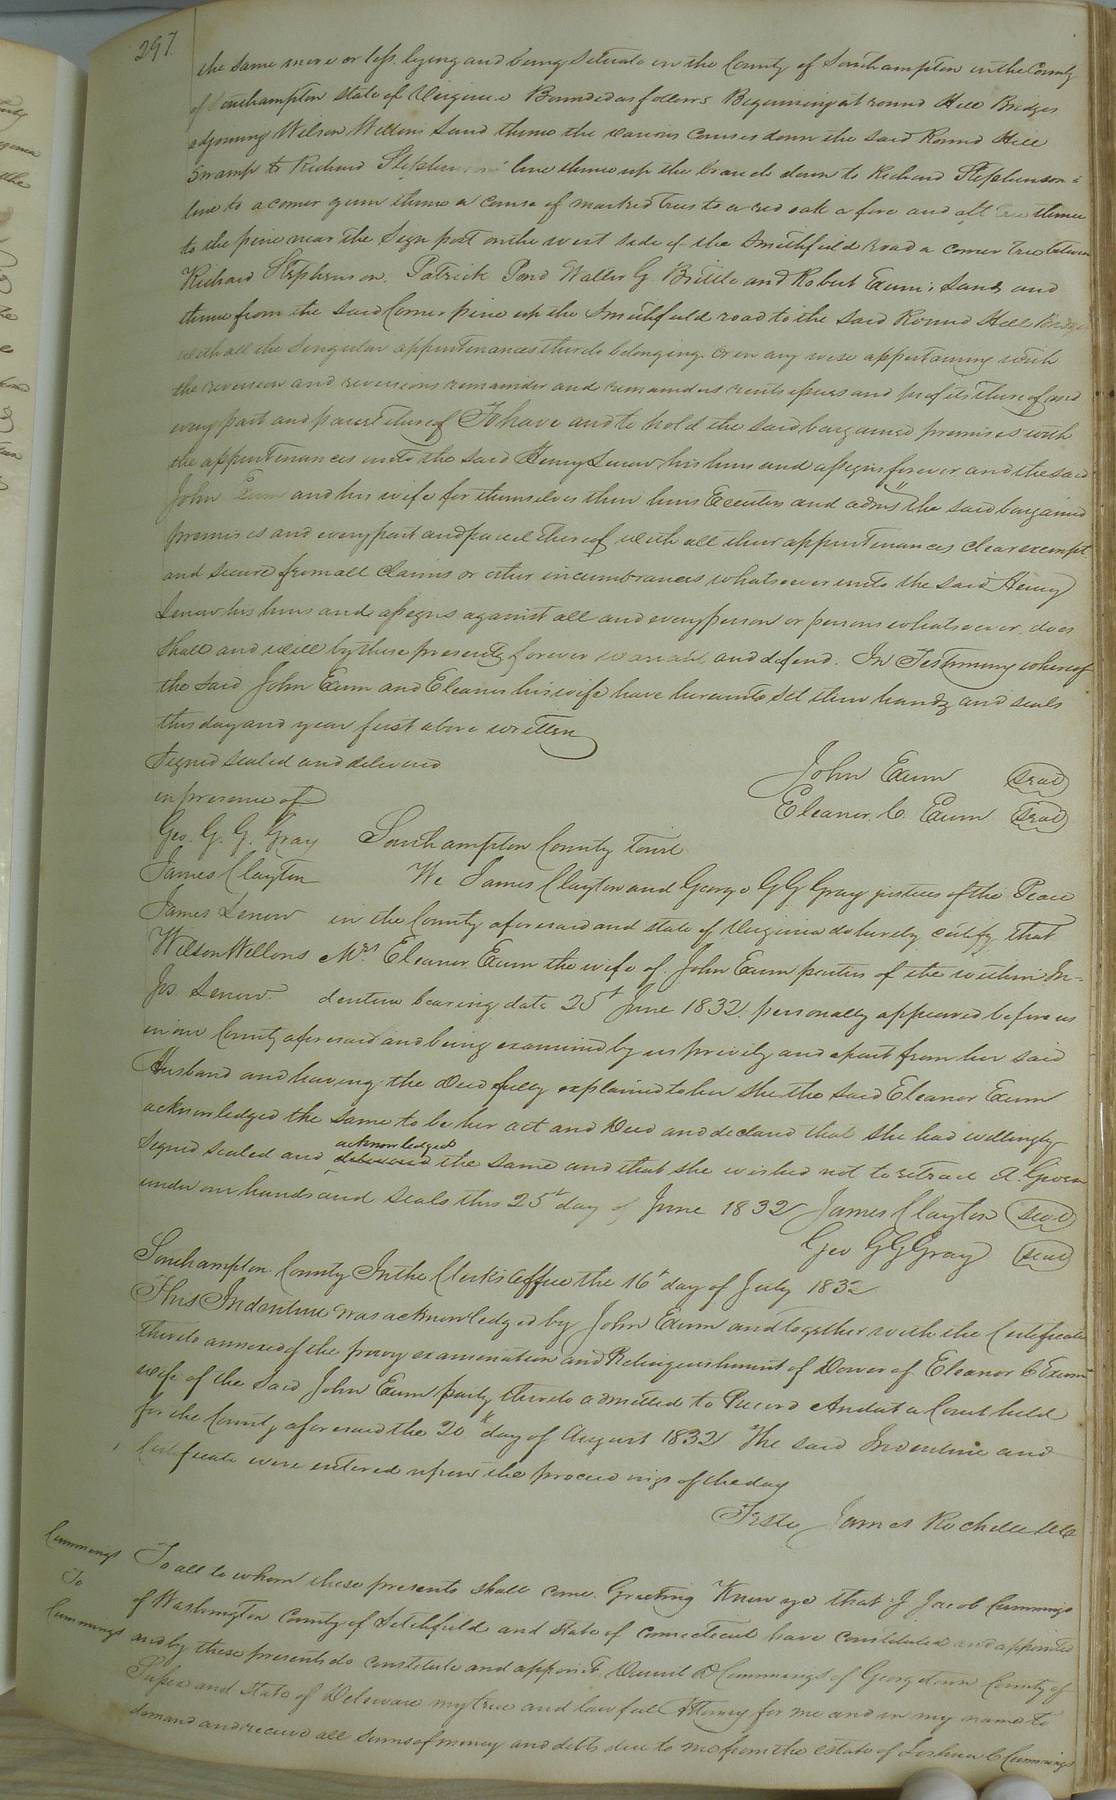 297.
the same more or less lying and being Situate in the County of Southampton in the County
of Southampton State of Virginia Bounded as follows Beginning at round Hill Bridges
adjoining Wilson Wellons Land thence the various Courses down the said Round Hill
Swamp to Richard Stephenson line thence up the branch down to Richard Stephenson's
line to a corner gum thence a course of marked trees to a red oak a fore and aft tree thence
to the pine near the Sign post on the west side of the Smithfield road a corner tree between
Richard Stephenson, Patrick Pond Walter G Brittle and Robert Exum's Lands and
thence from the said Corner pine up the Smithfield road to the said Round Hill Bridges
with all the Singular appurtenances thereto belonging or in any wise appertaining with
the reversion and reversions remainder and remainders rents issues and profits thereof and
every part and parcel thereof To have and to hold the said bargained premises with
the appurtenances unto the said Henry Lenow his heirs and assigns forever and the said
John Exum and his wife for themselves their heirs Executors and adms the said bargained
premises and every part and parcel thereof with all their appurtenances clear exempt
and secure from all claims or other incumbrances whatsoever unto the said Henry
Lenow his heirs and assigns against all and every person or persons whatsoever does
Shall and will by these presents forever warrant and defend. In Testimony whereof
the said John Exum and Eleanor his wife have hereunto set their hands and seals
this day and year first above written
Signed sealed and delivered
in presence of
John Exum (seal)
Eleanor C. Exum (seal)
Geo. G. G. Gray
James Clayton
James Lenow
Wilson Wellons
Jos. Lenow.
Southampton County Towit
We James Clayton and George G G Gray justices of the Peace
in the County aforesaid and state of Virginia do hereby certify that
Mrs Eleanor Exum the wife of John Exum parties of the within In-
denture bearing date 25t June 1832 personally appeared before us
in our County aforesaid and being examined by us privily and apart from her said
Husband and having the Deed fully explained to her she the said Eleanor Exum
acknowledged the same to be her act and Deed and declared that she had willingly
acknowledged
Signed sealed and delivered the same and that she wished not to retract it. Given
under our hands and seals this 25t day of June 1832 James Clayton (seal)
Geo G G Gray (seal)
Southampton County In the Clerk's office the 16t day of July 1832
This Indenture was acknowledged by John Exum and together with the Certificate
thereto annexed of the privy examination and Relinquishment of Dower of Eleanor C Exum
wife of the said John Exum party thereto admitted to Record And at a Court held
for the County aforesaid the 20th day of August 1832 The said Indenture and
Certificate were entered upon the proceedings of the day
Teste James Rochelle
Cummings
To
Cummings
To all to whom these presents shall come Greeting Know ye that I Jacob Cummings
of Washington County of Litchfield and State of Connecticut have constituted and appointed
and by these presents do constitute and appoint Daniel D Cummings of Georgetown County of
Sussex and State of Delaware my true and lawful Attorney for me and in my name to
demand and receive all sums of money and debts due to me from the estate of Joshua C Cummings